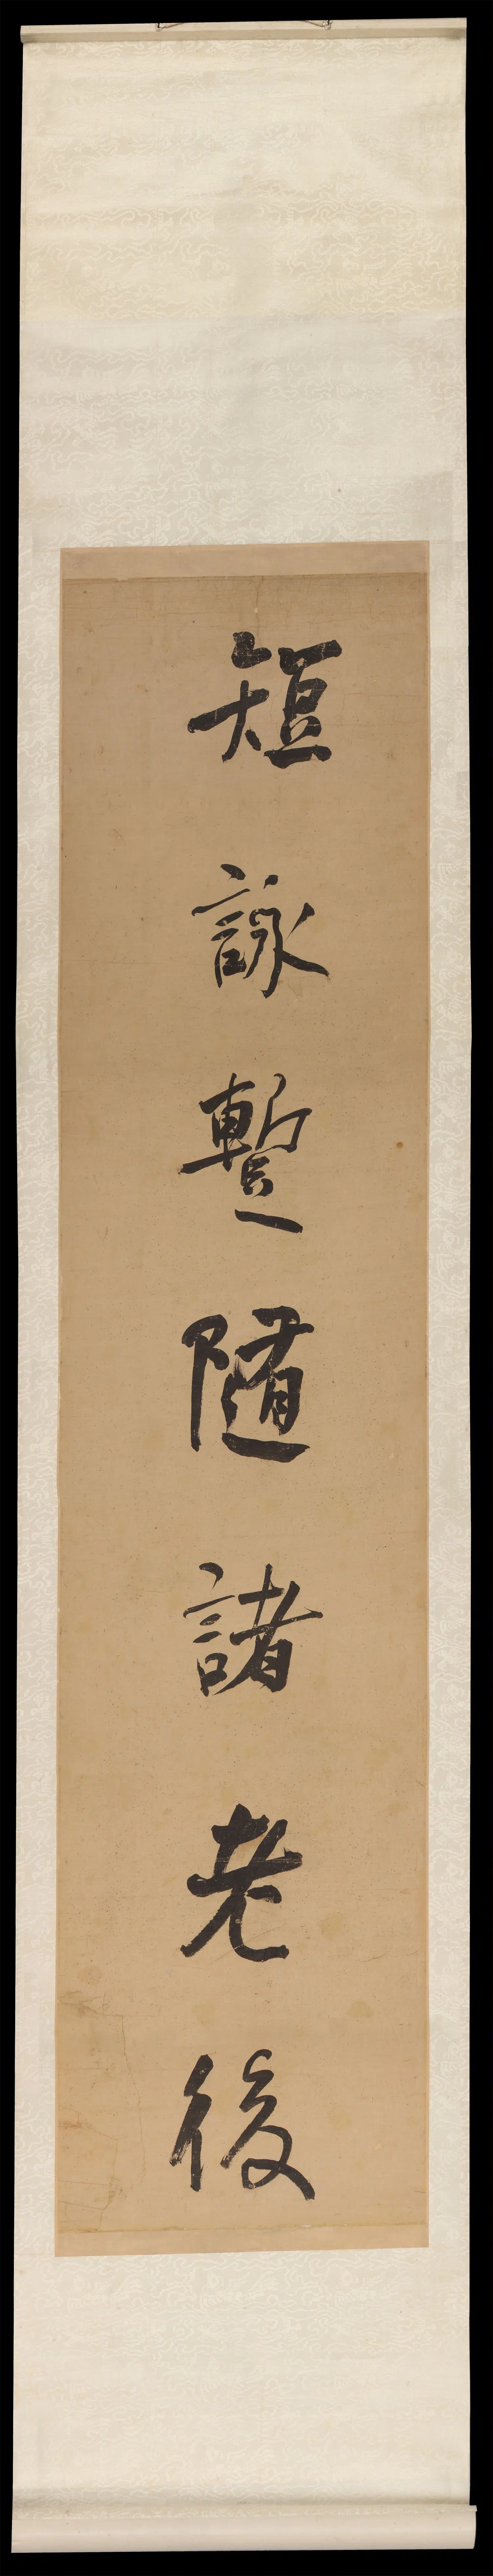 短詠蹔隨諸老後